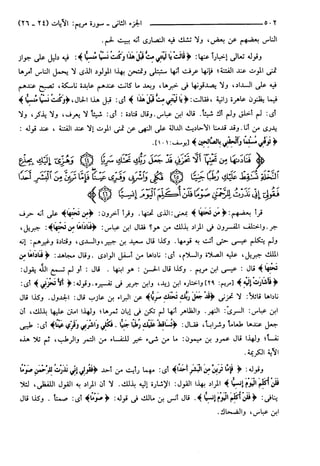 ٥٠٢ الجزء الثاني - سورة مريم: الآيات (٢٤ - ٢٦)
الناس بعضهم عن بعض، ولا تشك فيه النصارى أنه بيت لحم.
وقوله تعالى إخباراً عنها: ﴿قالت يا ليتني مت قبل هذا وكنت نسياً منسياً﴾ فيه دليل على جواز
تمني الموت عند الفتنة؛ فإنها عرفت أنها ستبتلى وتمتحن بهذا المولود الذي لا يحمل الناس أمرها
فيه على السداد، ولا يصدقونها في خبرها، وبعد ما كانت عندهم عابدة ناسكة، تصبح عندهم
فيما يظنون عاهرة زانية، فقالت: ﴿يا ليتني مت قبل هذا﴾ أي: قبل هذا الحال، ﴿وكنت نسياً منسياً﴾
أي: لم أخلق ولم أك شيئاً. قاله ابن عباس. وقال قتادة: أي: شيئاً لا يعرف، ولا يذكر، ولا
يدرى من أنا. وقد قدمنا الأحاديث الدالة على النهي عن تمني الموت إلا عند الفتنة، عند قوله:
﴿توفني مسلماً وألحقني بالصالحين﴾ [يوسف: ١٠١].
فناداها من تحتها ألا تحزني قد جعل ربك تحتك سريا (٢٤) وهزي إليك بجذع
النخلة تساقط عليك رطبا جنيا (٢٥) فكلي واشربي وقري عينا فإما ترين من البشر أحدا
فقولي إني نذرت للرحمن صوما فلن أكلم اليوم إنسيا (٢٦)
قرأ بعضهم: ﴿من تحتها﴾ بمعنى: الذي تحتها. وقرأ آخرون: ﴿من تحتها﴾ على أنه حرف
جر. واختلف المفسرون في المراد بذلك من هو؟ فقال ابن عباس: ﴿فناداها من تحتها﴾: جبريل،
ولم يتكلم عيسى حتى أتت به قومها. وكذا قال سعيد بن جبير، والسدي، وقتادة وغيرهم: إنه
الملك جبريل، عليه الصلاة والسلام، أي: ناداها من أسفل الوادي. وقال مجاهد: ﴿فناداها من
تحتها﴾ قال: عيسى ابن مريم. وكذا قال الحسن: هو ابنها. قال: أو لم تسمع الله يقول:
﴿فأشارت إليه﴾ [مريم: ٢٩] واختاره ابن زيد، وابن جرير في تفسيره. وقوله: ﴿ألا تحزني﴾ أي:
ناداها قائلاً: لا تحزني ﴿قد جعل ربك تحتك سريا﴾ عن البراء بن عازب قال: الجدول. وكذا قال
ابن عباس: السري: النهر. والظاهر أنها لم تكن في إبان ثمرها، ولهذا امتن عليها بذلك، أن
جعل عندها طعاماً وشراباً، فقال: ﴿تساقط عليك رطبا جنيا. فكلي واشربي وقري عيناً﴾ أي: طيبي
نفساً، ولهذا قال عمرو بن ميمون: ما من شيء خير للنفساء من التمر والرطب، ثم تلا هذه
الآية الكريمة.
وقوله: ﴿فإما ترين من البشر أحداً﴾ أي: مهما رأيت من أحد ﴿فقولي إني نذرت للرحمن صوما
فلن أكلم اليوم إنسيا﴾ المراد بهذا القول: الإشارة إليه بذلك. لا أن المراد به القول اللفظي، لئلا
ينافي: ﴿فلن أكلم اليوم إنسيا﴾. قال أنس بن مالك في قوله: ﴿صوماً﴾ أي: صمتاً. وكذا قال
ابن عباس، والضحاك.